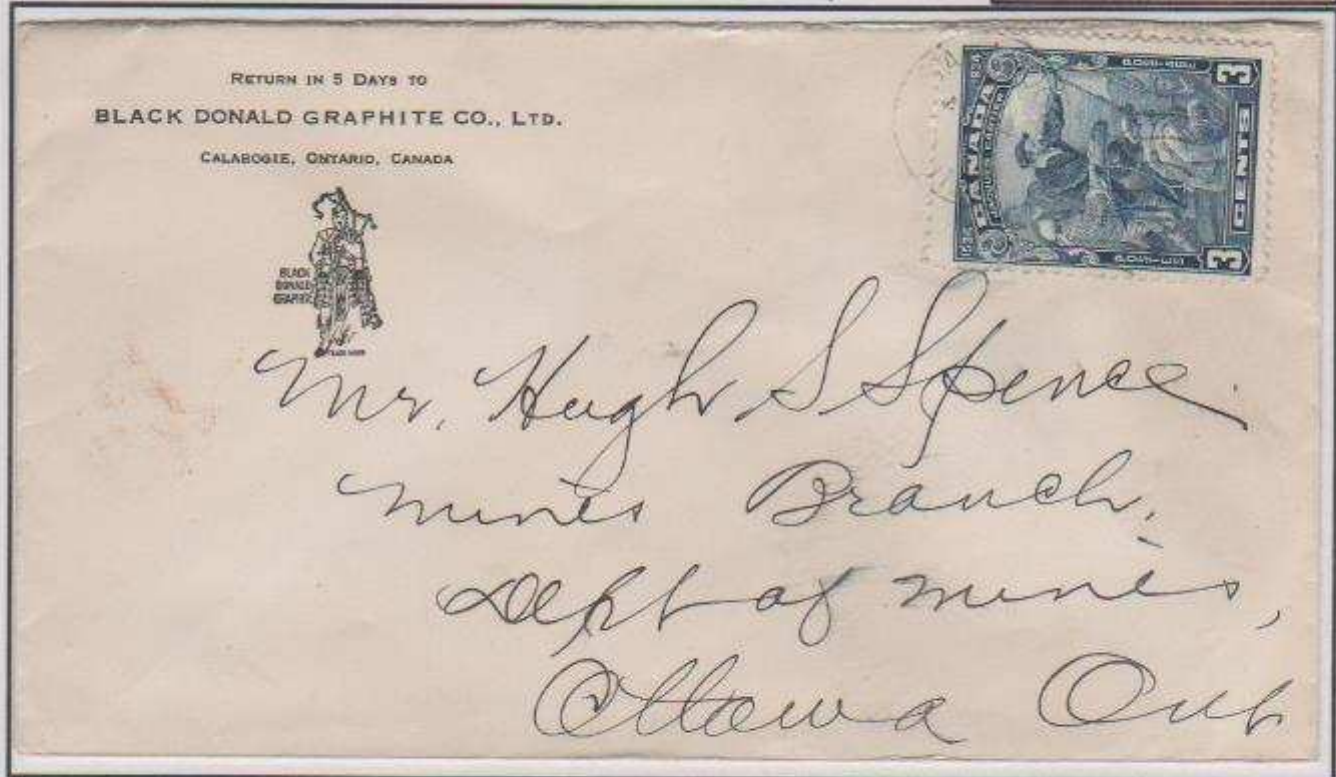 RETURN IN 5 DAYS TO
BLACK DONALD GRAPHITE CO., LTD.
CALABOGIE, ONTARIO, CANADA
BLACK
DONALD
GRAPHITE
TRADE MARK
CANADA
3 CENTS 3
Mr. Hugh S Spence.
Mines Branch,
Dept of Mines,
Ottawa Ont